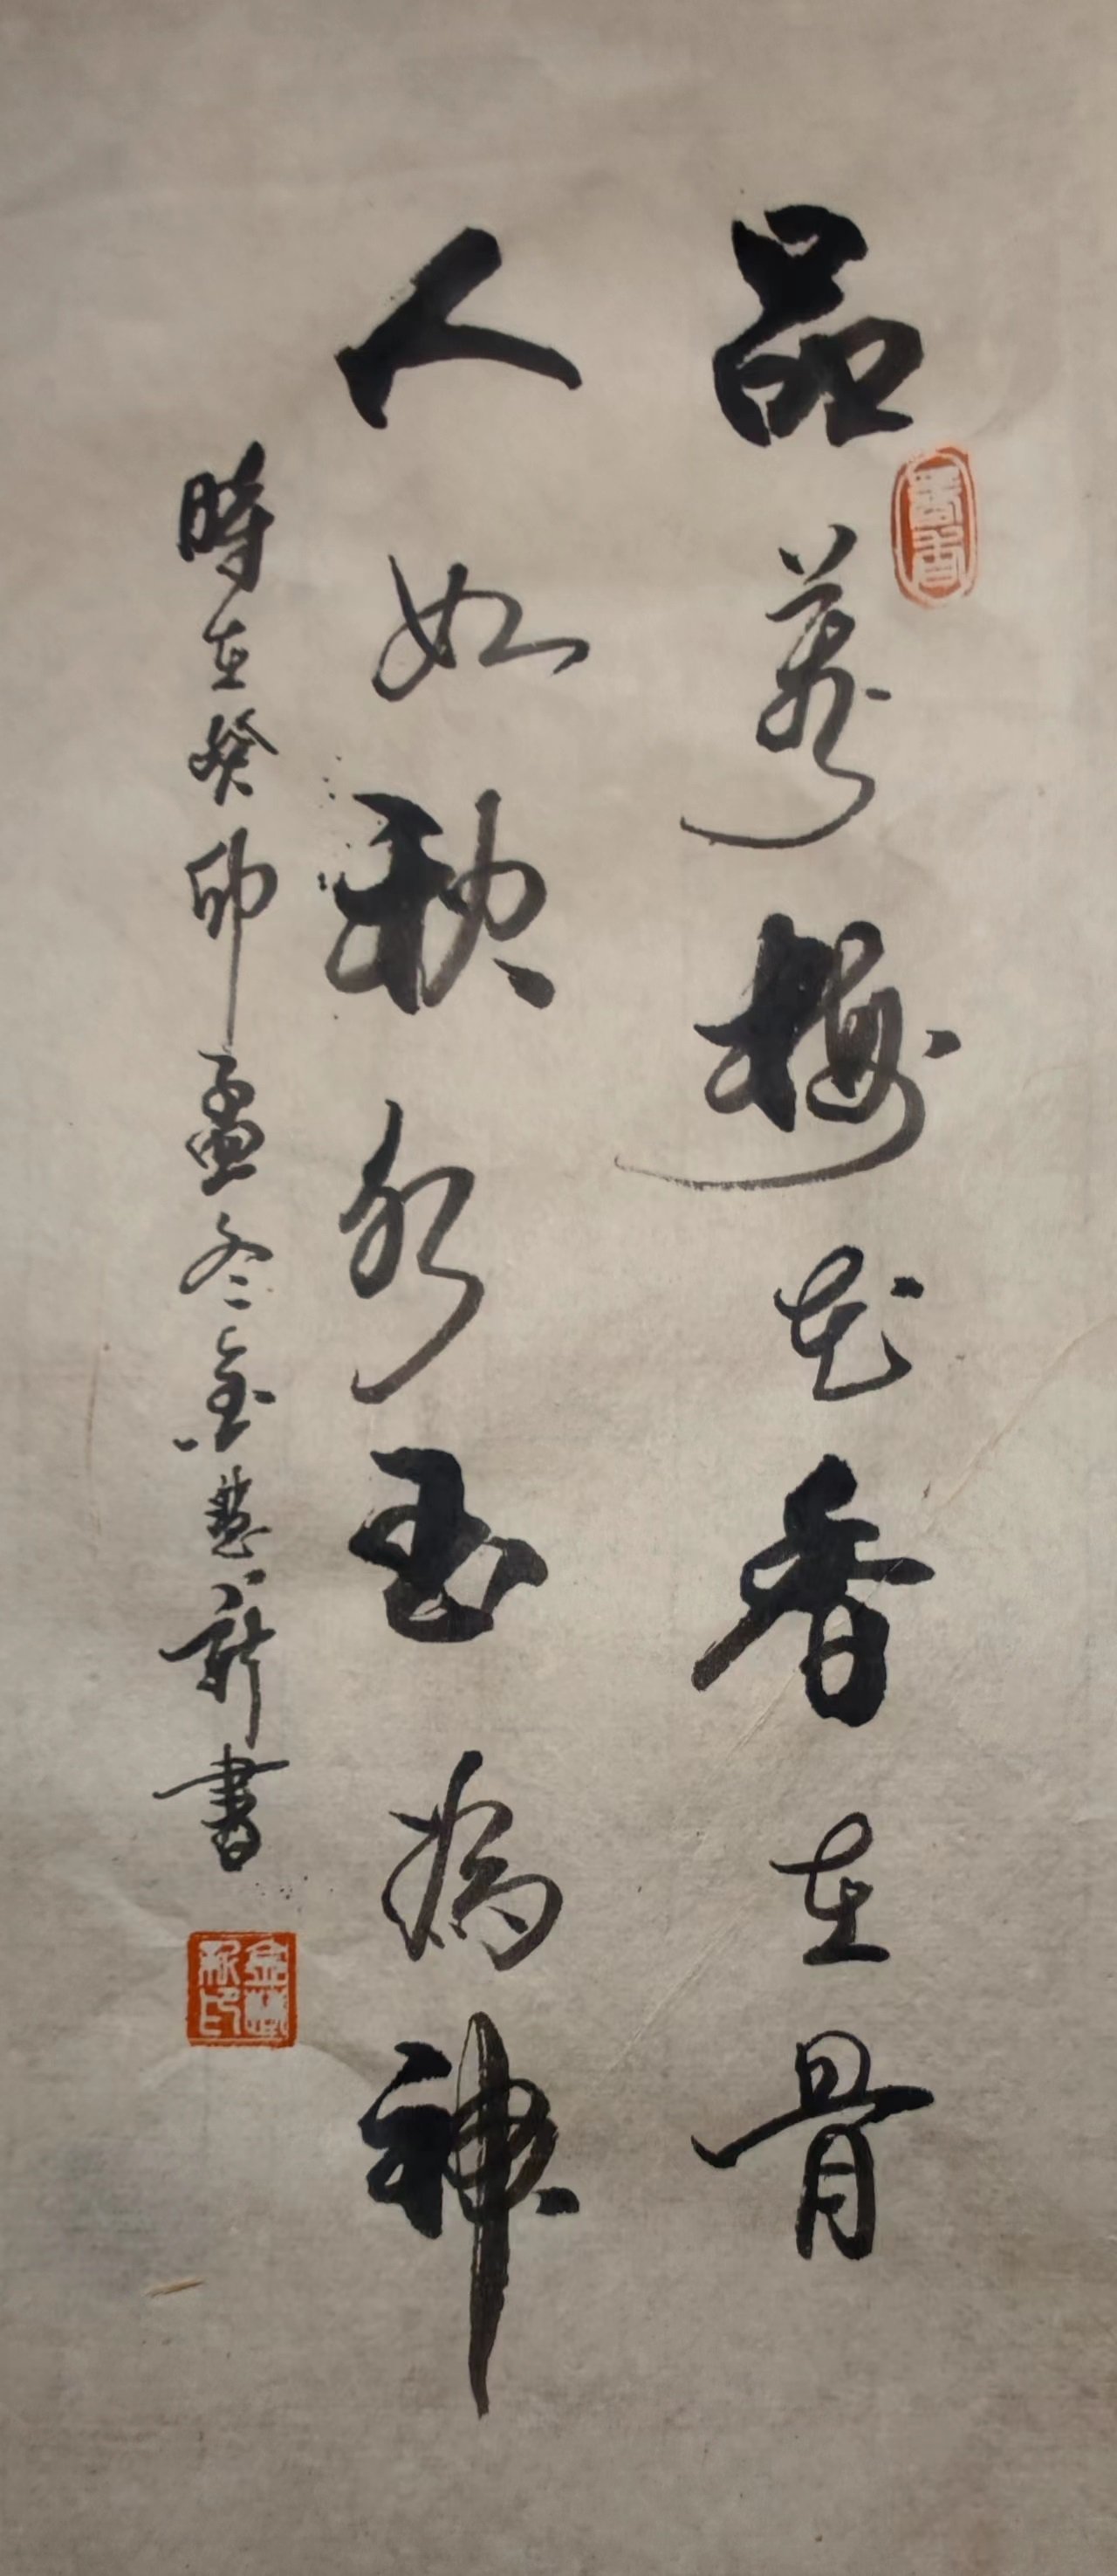 品若梅花香在骨
人如秋水玉為神
時在癸卯孟冬金慧新書
書香
金慧新印